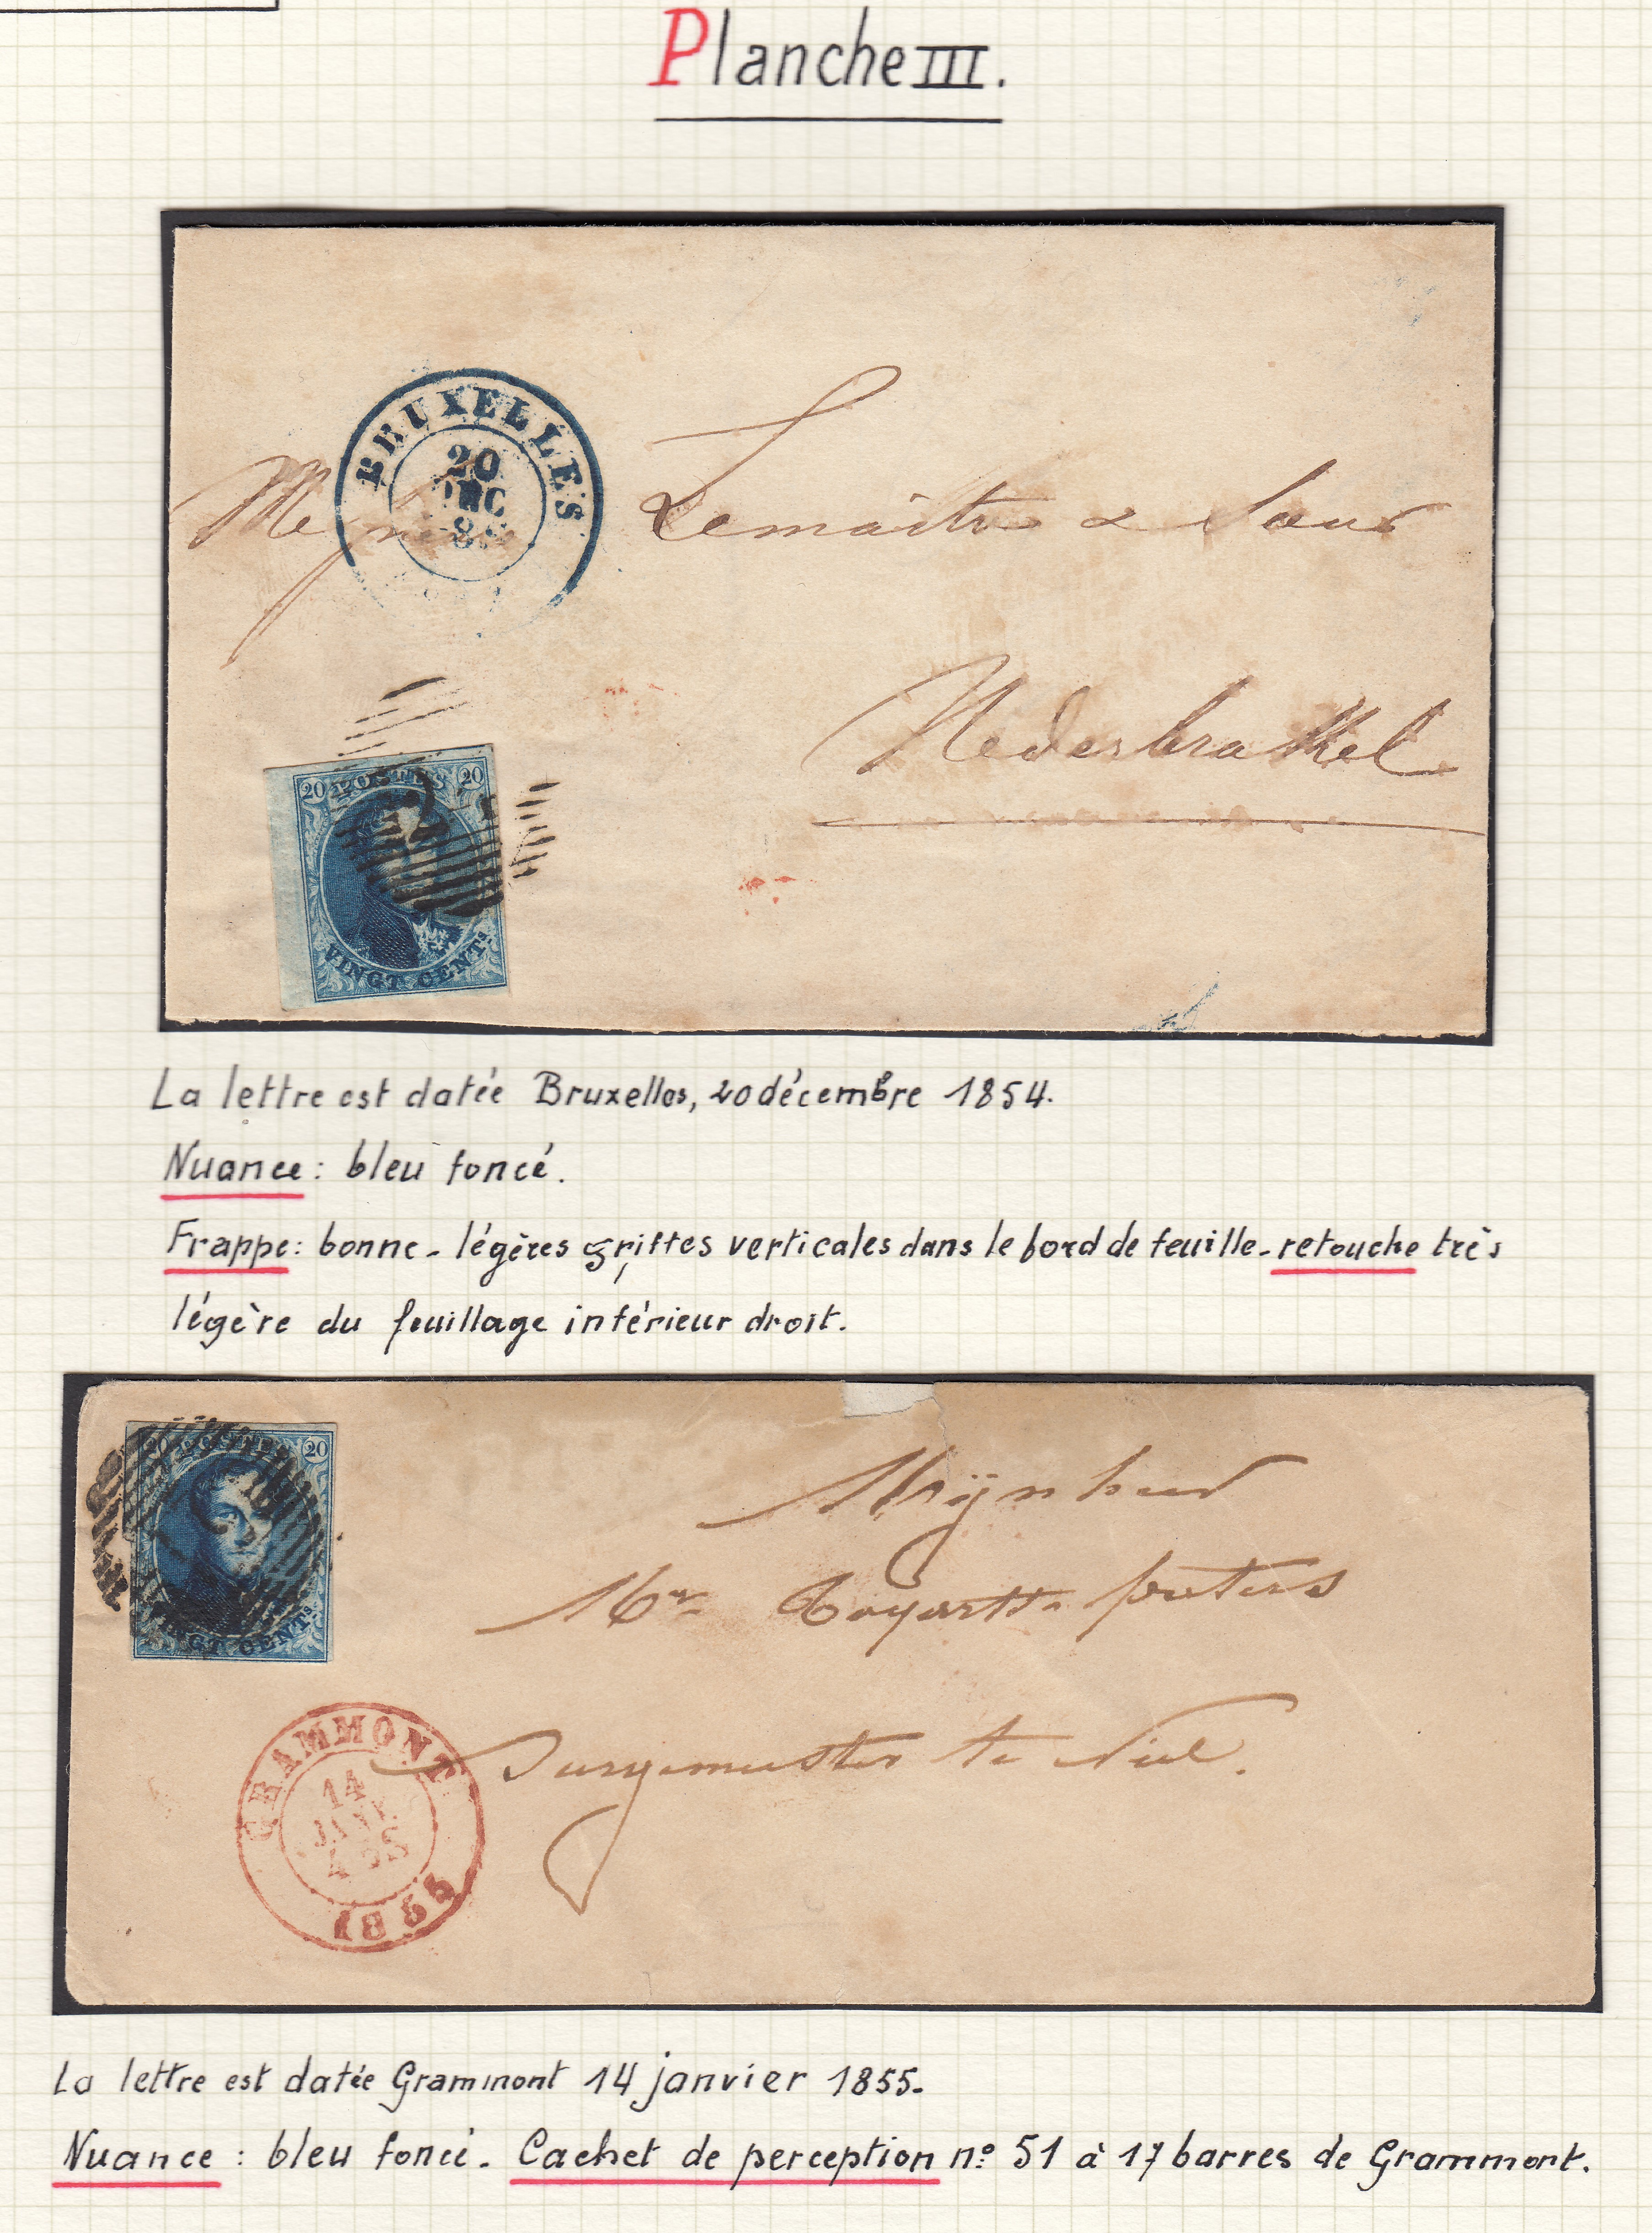 Planche III.
BRUXELLES
20
Lemaitre & Soeur
Nederbrakel
20 POSTES 20
VINGT CENTS.
La lettre est datée Bruxelles, 20 décembre 1854.
Nuance : bleu foncé.
Frappe : bonne - légères griffes verticales dans le bord de feuille - retouche très
légère du feuillage inférieur droit.
20 POSTES 20
VINGT CENTS.
Mijnheer
Mr
Burgemeester te
GRAMMONT
14
JANV
1855
La lettre est datée Grammont 14 janvier 1855.
Nuance : bleu foncé. Cachet de perception n° 51 à 17 barres de Grammont.